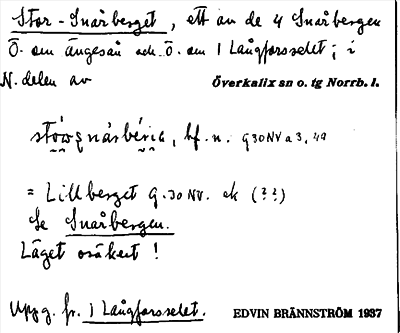 Stor-Snårberget, ett av de 4 Snårbergen
Ö. om Ängesån och Ö. om 1 Långforsselet; i
N. delen av Överkalix sn o. tg Norrb. l.
bf. n. g 30 NV a 3, 49
= Lillberget g. 30 NV. ek (??)
Se Snårbergen.
Läget osäkert !
Uppg. fr. 1 Långforsselet. EDVIN BRÄNNSTRÖM 1937